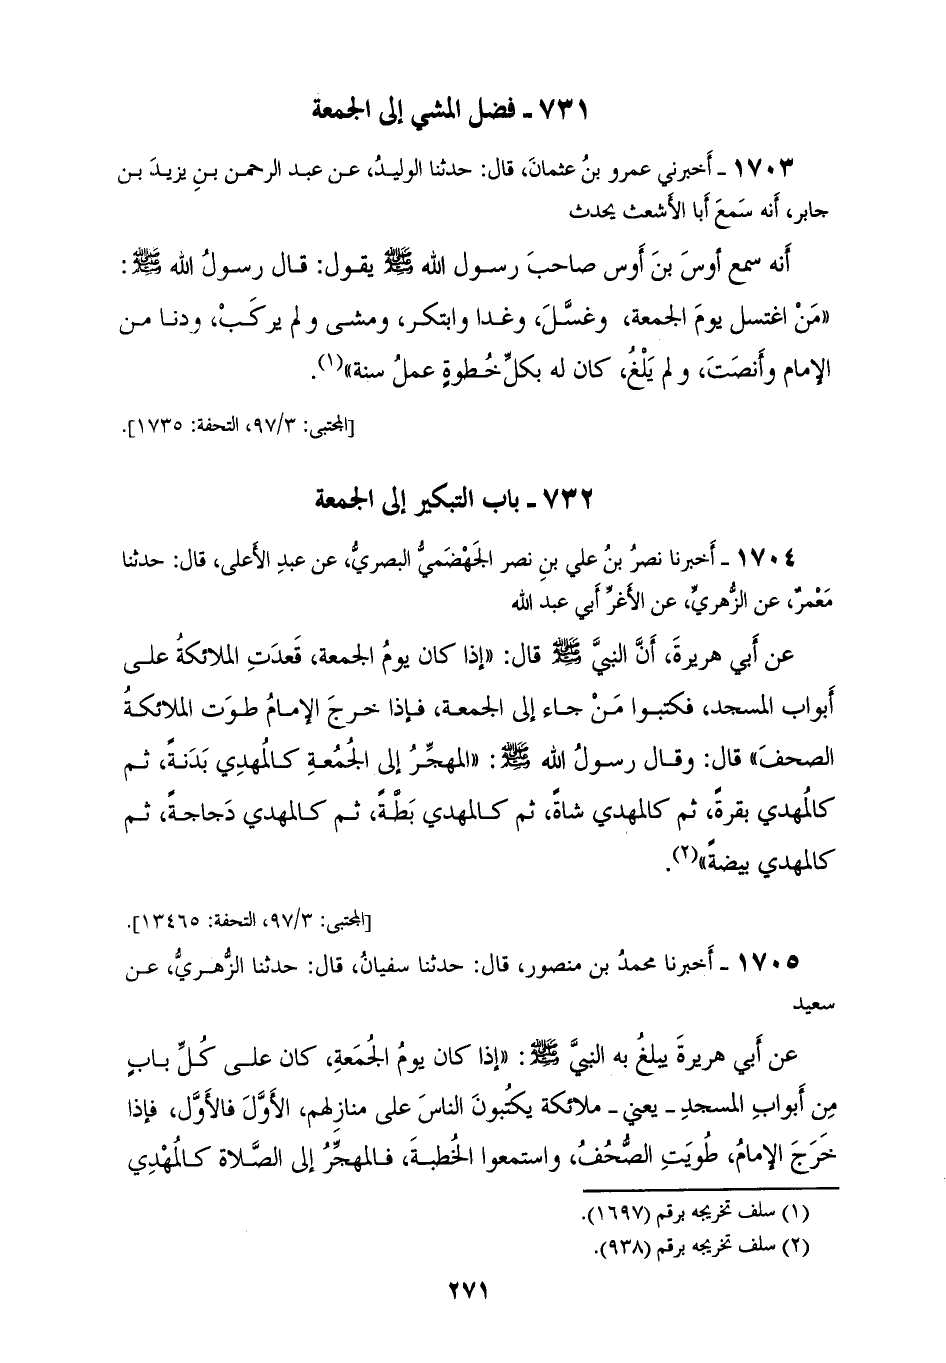 ٧٣١ ـ فضل المشي إلى الجمعة
١٧٠٣ ـ أخبرني عمرو بنُ عثمانَ، قال: حدثنا الوليدُ، عن عبد الرحمن بنِ يزيدَ بن
جابر، أنه سَمعَ أبا الأشعث يحدث
أنه سمع أوسَ بنَ أوس صاحبَ رسول الله ﷺ يقول: قال رسولُ الله ﷺ:
«مَنْ اغتسل يومَ الجمعة، وغسَّلَ، وغدا وابتكر، ومشى ولم يركَبْ، ودنا من
الإمام وأنصَتَ، ولم يَلْغُ، كان له بكلِّ خُطوةٍ عملُ سنة»(١).
[المجتبى: ٩٧/٣، التحفة: ١٧٣٥].
٧٣٢ ـ باب التبكير إلى الجمعة
١٧٠٤ ـ أخبرنا نصرُ بنُ علي بنِ نصر الجَهْضَميُّ البصريُّ، عن عبدِ الأعلى، قال: حدثنا
مَعْمرٌ، عن الزُّهريِّ، عن الأغرِّ أبي عبد الله
عن أبي هريرةَ، أنَّ النبيَّ ﷺ قال: «إذا كان يومُ الجمعة، قَعدَتِ الملائكةُ على
أبواب المسجد، فكتبوا مَنْ جاء إلى الجمعة، فإذا خرجَ الإمامُ طوَت الملائكةُ
الصحفَ» قال: وقال رسولُ الله ﷺ: «المهجِّرُ إلى الجُمُعةِ كالمُهدِي بَدَنةً، ثم
كالمُهدي بقرةً، ثم كالمهدي شاةً، ثم كالمهدي بَطَّةً، ثم كالمهدي دَجاجةً، ثم
كالمهدي بيضةً»(٢).
[المجتبى: ٩٧/٣، التحفة: ١٣٤٦٥].
١٧٠٥ ـ أخبرنا محمدُ بن منصور، قال: حدثنا سفيانُ، قال: حدثنا الزُّهريُّ، عن
سعيد
عن أبي هريرةَ يبلغُ به النبيَّ ﷺ: «إذا كان يومُ الجُمَعةِ، كان على كُلِّ بابٍ
مِن أبوابِ المسجدِ ـ يعني ـ ملائكة يكتُبونَ الناسَ على منازِلهم، الأوَّلَ فالأوَّل، فإذا
خَرَجَ الإمامُ، طُويَتِ الصُّحُفُ، واستمعوا الخُطبةَ، فالمهجِّرُ إلى الصَّلاة كالمُهْدِي
(١) سلف تخريجه برقم (١٦٩٧).
(٢) سلف تخريجه برقم (٩٣٨).
٢٧١